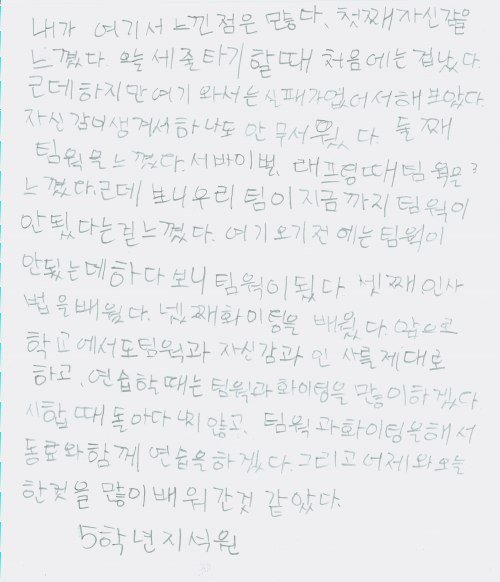 내가 여기서 느낀 점은 많다. 첫째 자신감을
느꼈다. 오늘 세줄타기 할때 처음에는 겁났다.
근데하지만 여기 와서는 실패가없어서해보았다.
자신감이생겨서하나도 안 무서웠다. 둘째
팀웍을 느꼈다. 서바이벌, 래프팅때 팀웍을
느꼈다. 근데 보니우리 팀이 지금까지 팀웍이
안됬다는걸느꼈다. 여기 오기전에는팀웍이
안됬는데하다보니 팀웍이됬다. 셋째, 인사
법을배웠다. 넷째화이팅을 배웠다. 앞으로
학교에서도팀웍과 자신감과 인사를제대로
하고, 연습할때는 팀웍과화이팅을많이하겠다
시합때 돌아다니지않고, 팀웍과화이팅을해서
동료와함께 연습을하겠다. 그리고 어제와오늘
한것을 많이배워간것 같았다.
5학년지석원